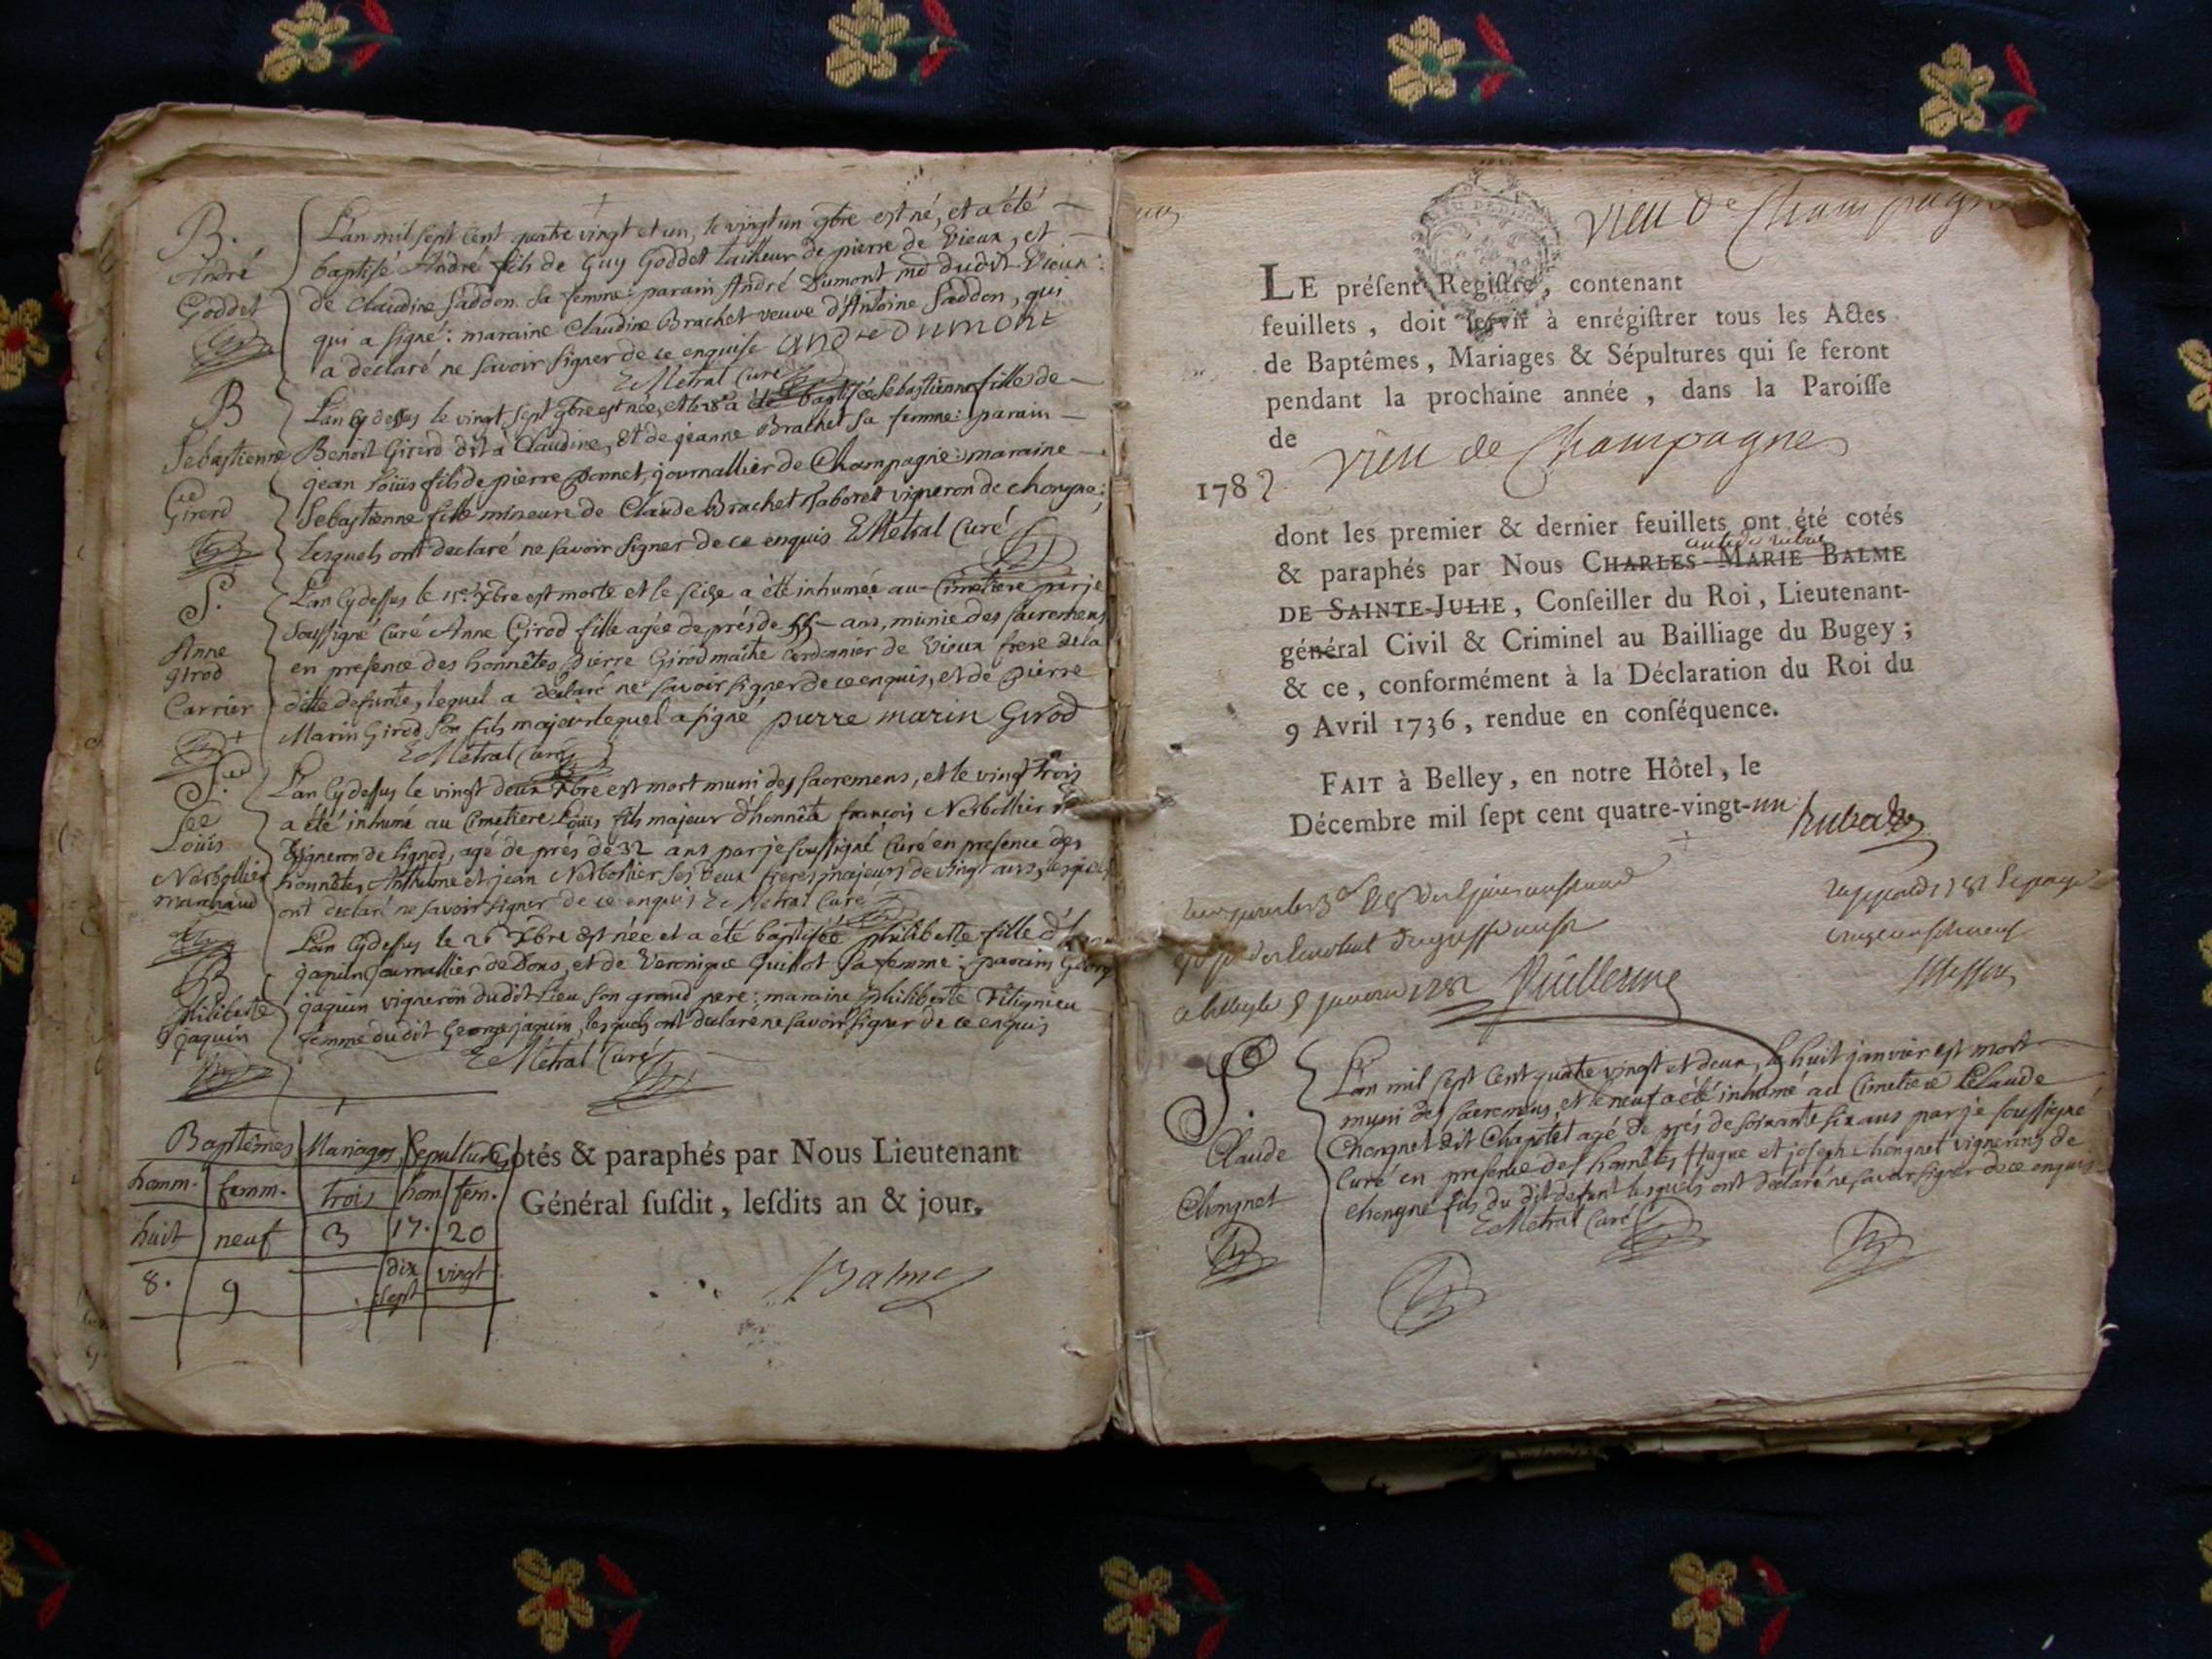 B.
André
Goddet
L'an mil sept cent quatre vingt et un, le vingt un 9bre est né, et a été
baptisé André fils de Guy Goddet tailleur de pierre de Vieux, et
de Claudine Saddon sa femme: parain André Dumont md dudit Vieux
qui a signé: maraine Claudine Brachet veuve d'Antoine Saddon, qui
a declaré ne savoir signer de ce enquise andre dumont
E Metral Curé
B
Sebastienne
Girerd
L'an cy dessus le vingt sept 9bre est née, et le 28 a été baptisée Sebastienne fille de
Benoit Girerd dit à Claudine, et de jeanne Brachet sa femme: parain
jean Loüis fils de pierre Donnet, journallier de Champagne: maraine
Sebastienne fille mineure de Claude Brachet Taboret vigneron de chongne;
lesquels ont declaré ne savoir signer de ce enquis E Metral Curé
S.
Anne
girod
Carrier
L'an cy dessus le 15e Xbre est morte et le seize a été inhumée au Cimetiere par je
soussigné Curé Anne Girod fille agée de prés de 55 ans, munie des sacremens
en presence des honnêtes Pierre Girod maitre Cordonnier de Vieux frere de la
ditte defunte, lequel a declaré ne savoir signer de ce enquis, et de Pierre
Marin Girod son fils majeur lequel a signé pierre marin Girod
E Metral Curé
S.
Loüis
Nerbollier
marchand
L'an cy dessus le vingt deux Xbre est mort muni des sacremens, et le vingt trois
a été inhumé au Cimetiere Loüis fils majeur d'honnête françois Nerbollier
Vigneron de Lignod, agé de prés de 32 ans par je soussigné Curé en presence des
honnêtes Anthelme et jean Nerbollier ses deux freres majeurs de vingt ans, lesquels
ont declaré ne savoir signer de ce enquis E Metral Curé
B
Philiberte
jaquin
L'an cy dessus le 26 Xbre est née et a été baptisée philiberte fille
jaquin journallier de Dons, et de Veronique Guillot sa femme: parain George
jaquin vigneron dudit Lieu son grand pere: maraine philiberte Vitignieu
femme dudit George jaquin, lesquels ont declaré ne savoir signer de ce enquis
E Metral Curé
Baptêmes Mariages Sepultures
homm. femm. trois hom fem.
huit neuf 3 17. 20
8. 9 dix sept vingt
Cotés & paraphés par Nous Lieutenant
Général ſuſdit, leſdits an & jour.
Balme
Vieu de Champagne
LE préſent Regiſtre, contenant
feuillets, doit ſervir à enrégiſtrer tous les Actes
de Baptêmes, Mariages & Sépultures qui ſe feront
pendant la prochaine année, dans la Paroiſſe
de
Vieu de Champagne
1782
dont les premier & dernier feuillets ont été cotés
& paraphés par Nous CHARLES-MARIE BALME
DE SAINTE-JULIE, Conſeiller du Roi, Lieutenant-
général Civil & Criminel au Bailliage du Bugey;
& ce, conformément à la Déclaration du Roi du
9 Avril 1736, rendue en conſéquence.
FAIT à Belley, en notre Hôtel, le
Décembre mil ſept cent quatre-vingt-un
a belley le 8 janvier 1782 Vuillerme
S.
Claude
Chongnet
L'an mil sept cent quatre vingt et deux, le huit janvier est mort
muni des sacremens, et le neuf a été inhumé au Cimetiere Claude
Chongnet dit Chapitel agé de prés de soixante six ans par je soussigné
Curé en presence des honnêtes Hugue et joseph chongnet vignerons de
chongne fils du dit defunt lesquels ont declaré ne savoir signer de ce enquis
E Metral Curé